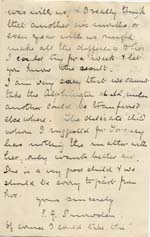 was with us, & I really think
that another six months or
even year with us might
make all the difference to her.
I could try for a week & let
you know the result.
I am very sorry that we cannot
take the child, unless
another could be transferred
elsewhere. The delicate child
whom I suggested for Torquay
has nothing the matter with
her, only wants better air.
She is a very good child & we
should be sorry to part from
her.
Yours sincerely
Of course I could take the